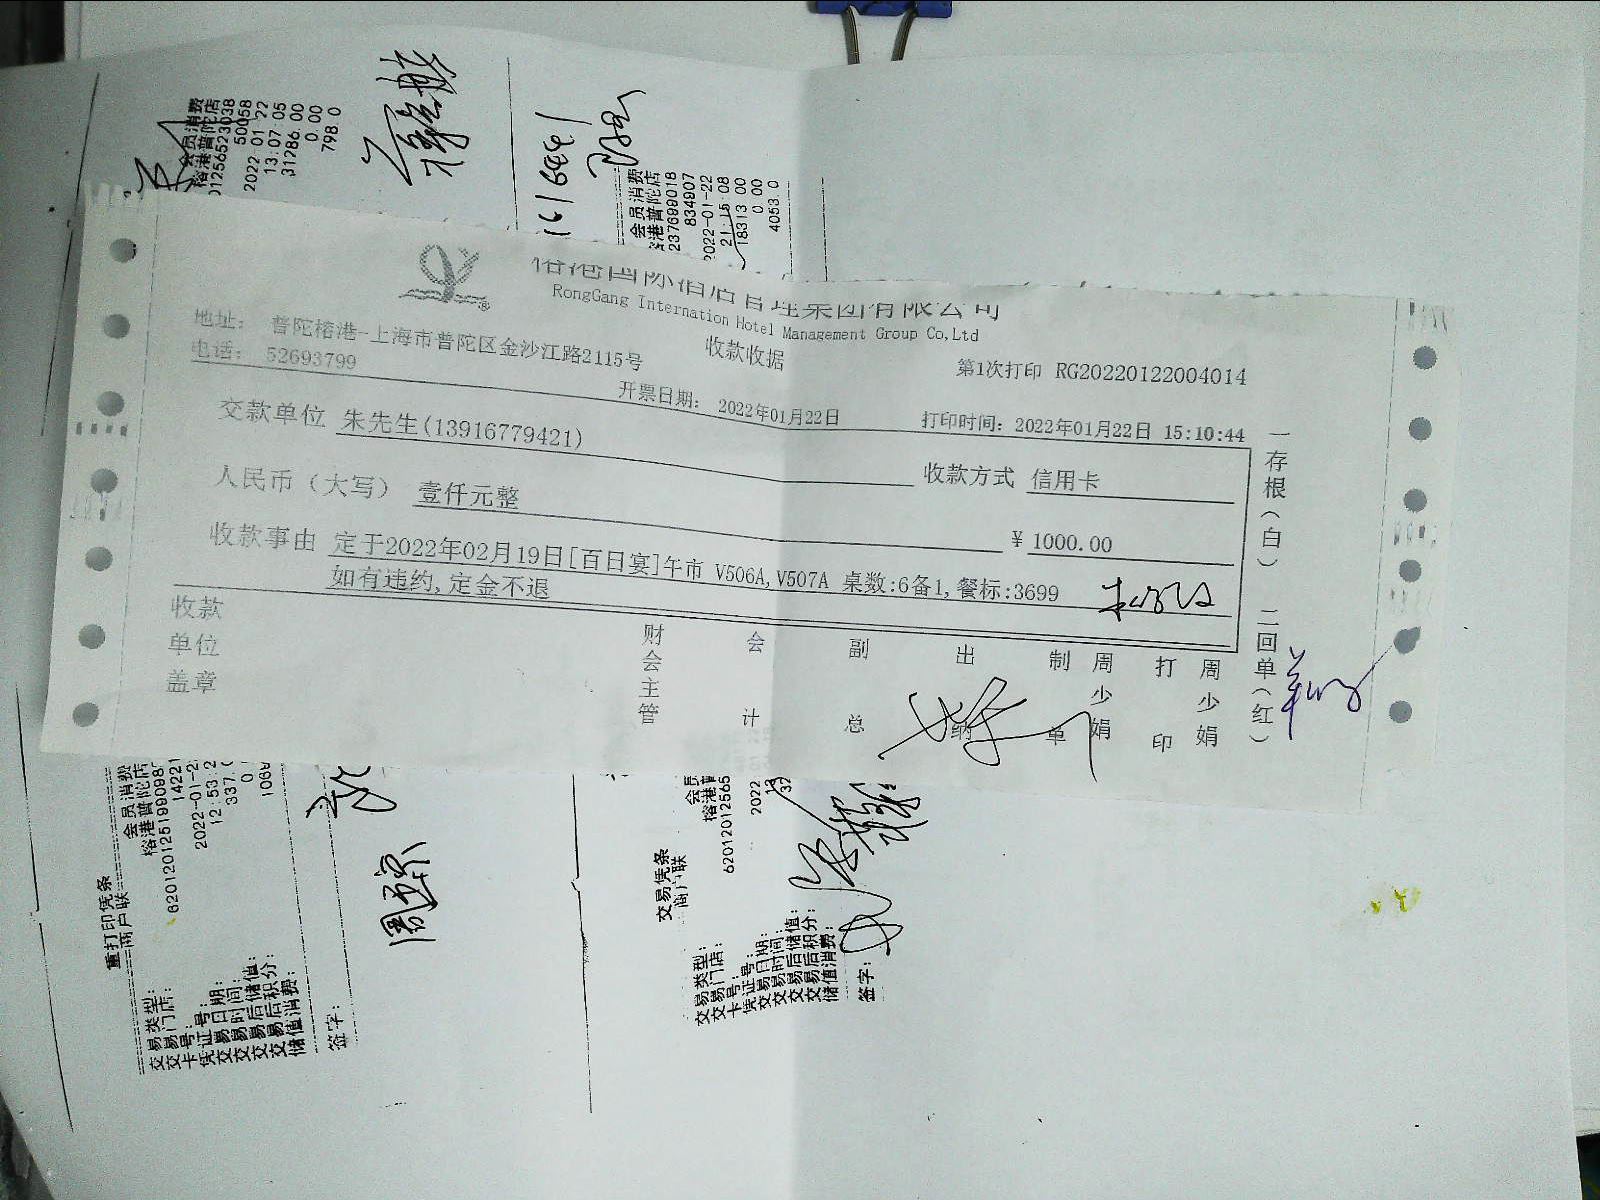 会员消费
榕港普陀店
50058
2022-01 22
13:07 05
31286.00
0.00
798.0
会员消费
237699018
834907
2022-01-22
21:15 08
18313 00
0.00
4053.0
榕港国际酒店管理集团有限公司
RongGang Internation Hotel Management Group Co,Ltd
地址: 普陀榕港-上海市普陀区金沙江路2115号
收款收据
电话: 52693799
第1次打印 RG20220122004014
开票日期: 2022年01月22日
打印时间: 2022年01月22日 15:10:44
交款单位 朱先生(13916779421)
收款方式 信用卡
人民币(大写) 壹仟元整
¥ 1000.00
收款事由 定于2022年02月19日[百日宴]午市 V506A,V507A 桌数:6备1,餐标:3699
如有违约,定金不退
收款单位盖章
财会主管
会计
副总
出纳
制单
周少娟
打印
周少娟
一存根(白) 二回单(红)
重打印凭条
商户联
会员消费
榕港普陀店
14221
12:53:2
337.0
交易类型:
交易门店:
卡号:
凭证号:
交易日期:
交易时间:
交易后储值:
交易后积分:
储值消费:
签字:
交易凭条
商户联
62012012565
2022
交易类型:
交易门店:
卡号:
凭证号:
交易日期:
交易时间:
交易后储值:
交易后积分:
储值消费:
签字: